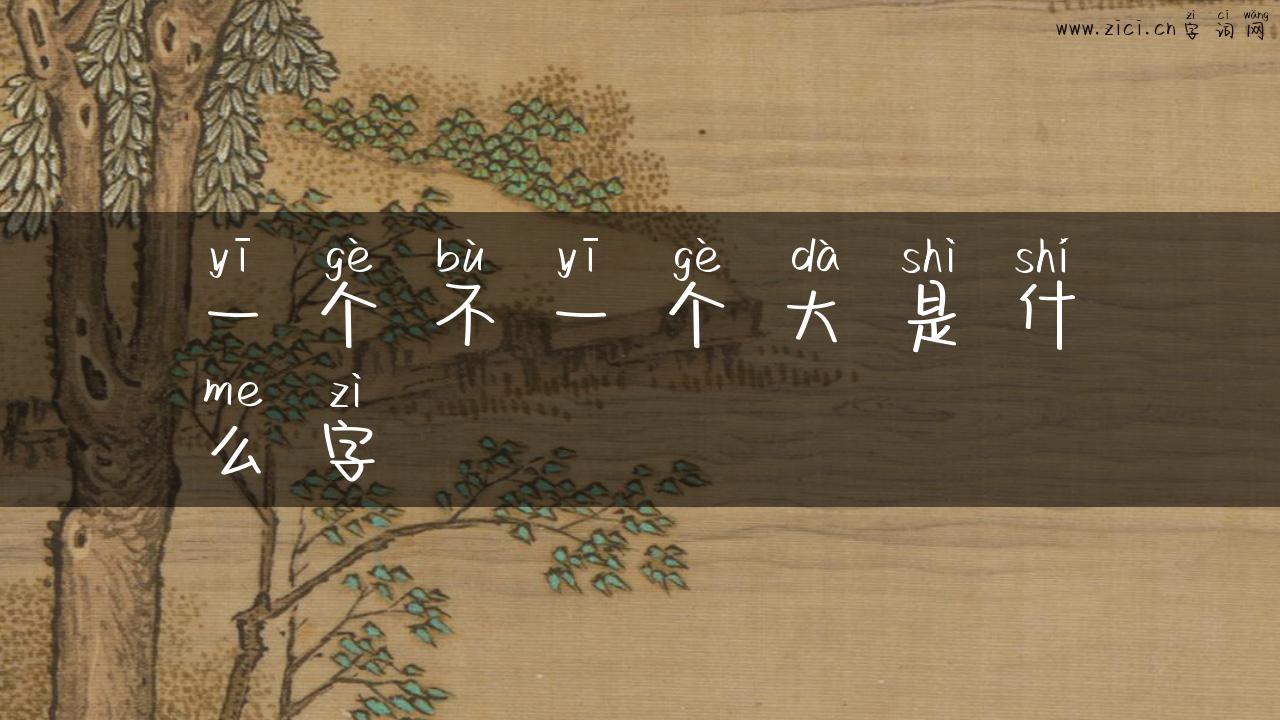 zì cí wǎng
www.zici.cn 字词网
yī gè bù yī gè dà shì shí
一个不一个大是什
me zì
么字